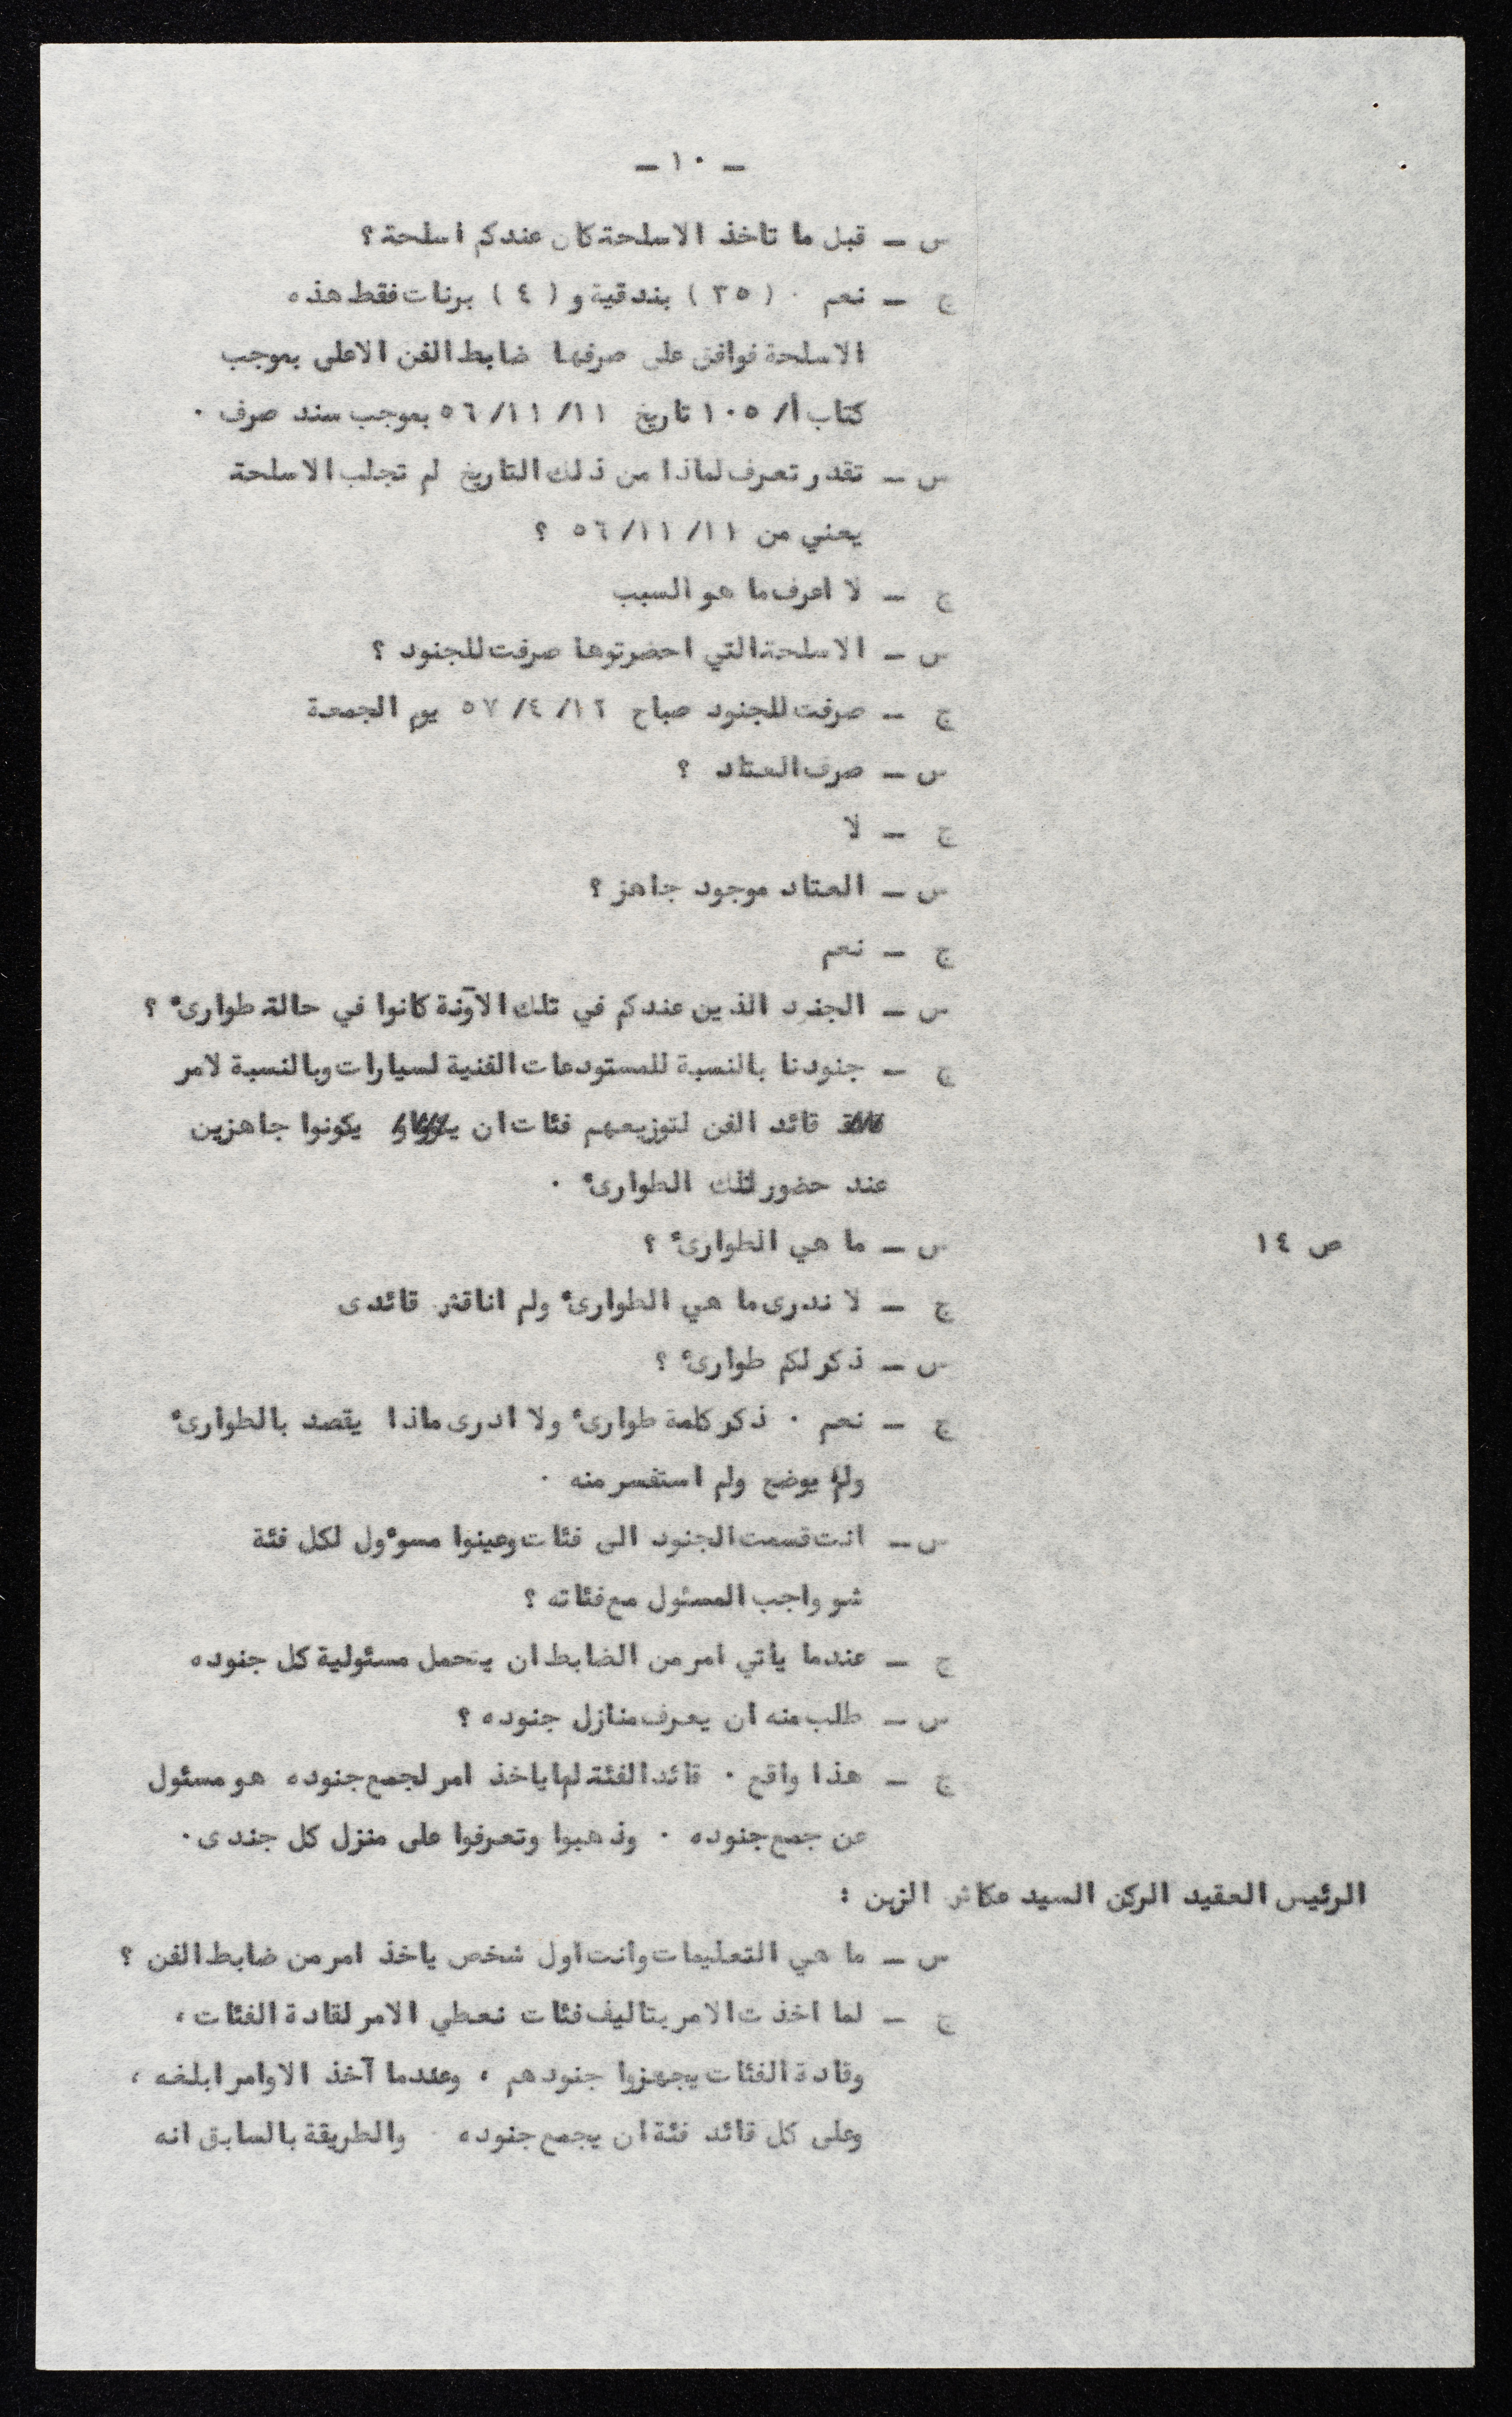 ـ ١٠ ـ
س ـ قبل ما تاخذ الاسلحة كان عندكم اسلحة ؟
ج ـ نعم ٠ ( ٣٥ ) بندقية و ( ٤ ) برنات فقط هذه
الاسلحة فوافق على صرفها ضابط الفن الاعلى بموجب
كتاب أ/ ١٠٥ تاريخ ١١/ ١١/ ٥٦ بموجب سند صرف ٠
س ـ تقدر تعرف لماذا من ذلك التاريخ لم تجلب الاسلحة
يعني من ١١/ ١١/ ٥٦ ؟
ج ـ لا اعرف ما هو السبب
س ـ الاسلحة التي احضرتوها صرفت للجنود ؟
ج ـ صرفت للجنود صباح ١٢/ ٤/ ٥٧ يوم الجمعة
س ـ صرف العتاد ؟
ج ـ لا
س ـ العتاد موجود جاهز ؟
ج ـ نعم
س ـ الجنود الذين عندكم في تلك الآونة كانوا في حالة طوارئ ؟
ج ـ جنودنا بالنسبة للمستودعات الفنية لسيارات وبالنسبة لامر
قائد الفن لتوزيعهم فئات ان يكونوا جاهزين
عند حضور تلك الطوارئ ٠
ص ١٤
س ـ ما هي الطوارئ ؟
ج ـ لا ندرى ما هي الطوارئ ولم اناقش قائدى
س ـ ذكر لكم طوارئ ؟
ج ـ نعم ٠ ذكر كلمة طوارئ ولا ادرى ماذا يقصد بالطوارئ
ولم يوضح ولم استفسر منه ٠
س ـ انت قسمت الجنود الى فئات وعينوا مسوٴول لكل فئة
شو واجب المسئول مع فئاته ؟
ج ـ عندما يأتي امر من الضابط ان يتحمل مسئولية كل جنوده
س ـ طلب منه ان يعرف منازل جنوده ؟
ج ـ هذا واقع ٠ قائد الفئة لما ياخذ امر لجمع جنوده هو مسئول
عن جمع جنوده ٠ وذهبوا وتعرفوا على منزل كل جندى ٠
الرئيس العقيد الركن السيد عكاش الزين :
س ـ ما هي التعليمات وانت اول شخص ياخذ امر من ضابط الفن ؟
ج ـ لما اخذت الامر بتاليف فئات نعطي الامر لقادة الفئات ،
وقادة الفئات يجهزوا جنودهم ، وعندما آخذ الاوامر ابلغه ،
وعلى كل قائد فئة ان يجمع جنوده ٠ والطريقة بالسابق انه